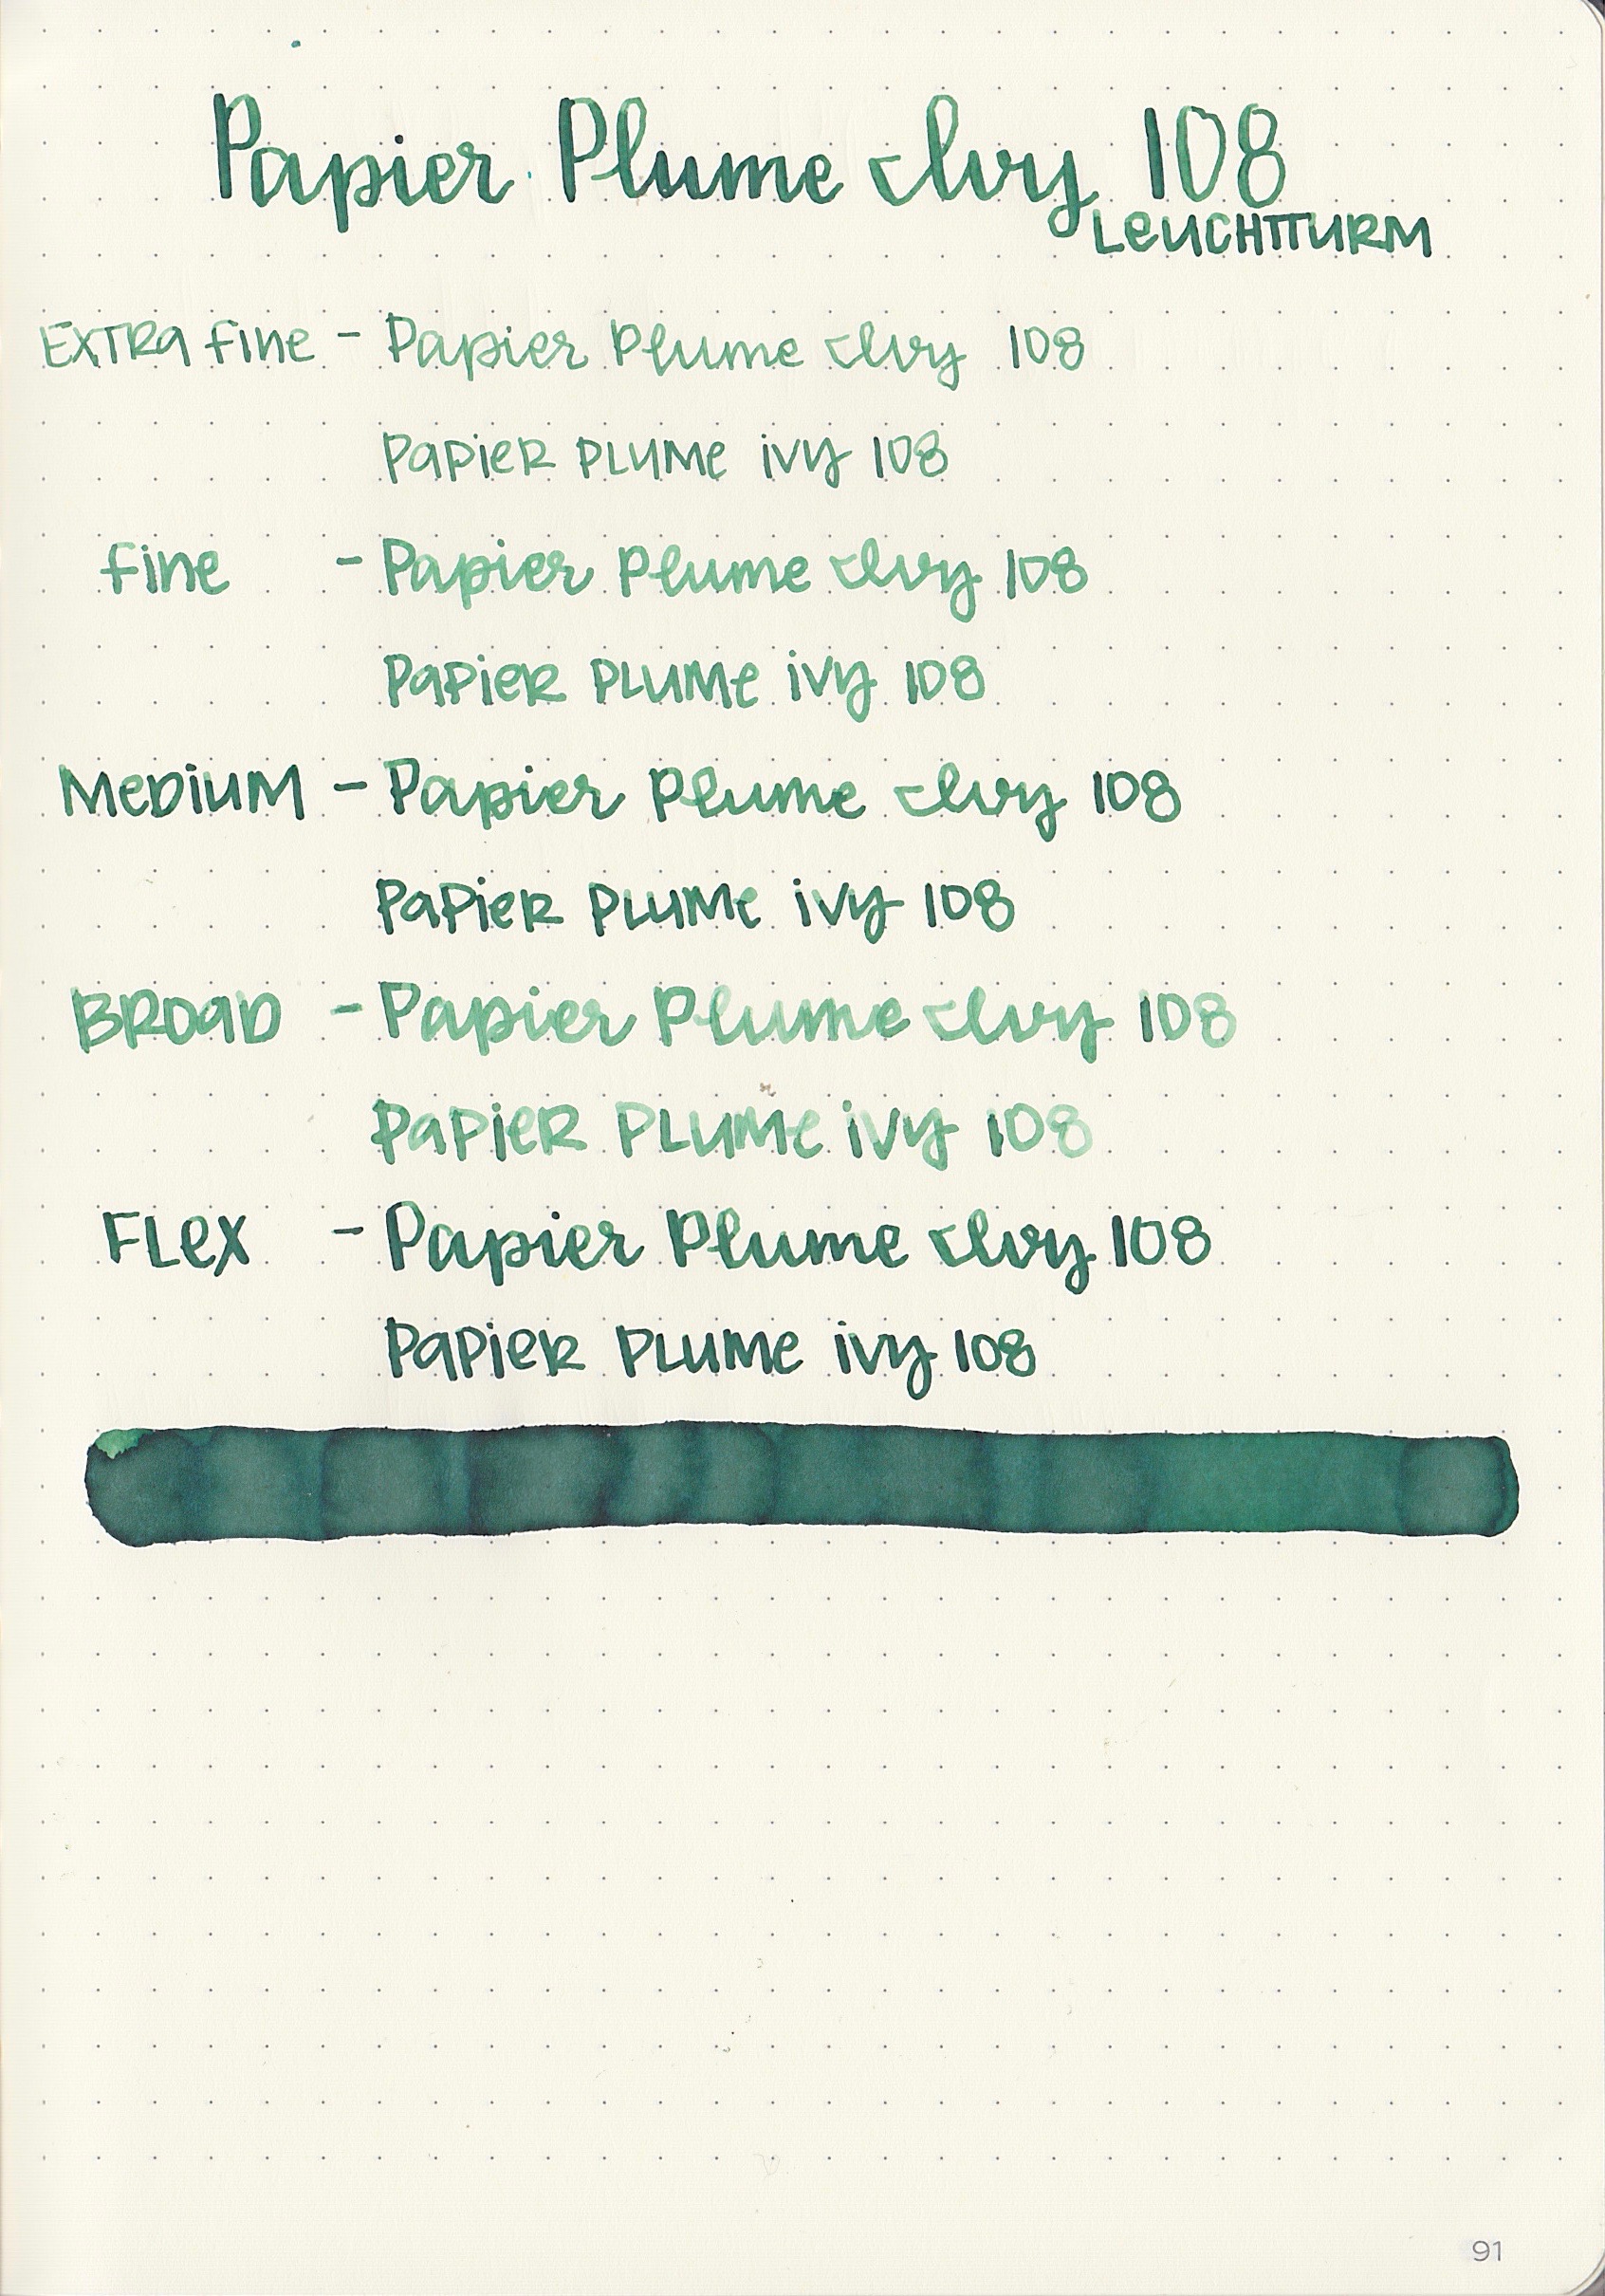 Papier Plume Ivy 108
LEUCHTTURM
EXTRA FINE - Papier Plume Ivy 108
PAPIER PLUME IVY 108
FINE - Papier Plume Ivy 108
PAPIER PLUME IVY 108
MEDIUM - Papier Plume Ivy 108
PAPIER PLUME IVY 108
BROAD - Papier Plume Ivy 108
PAPIER PLUME IVY 108
FLEX - Papier Plume Ivy 108
PAPIER PLUME IVY 108
91